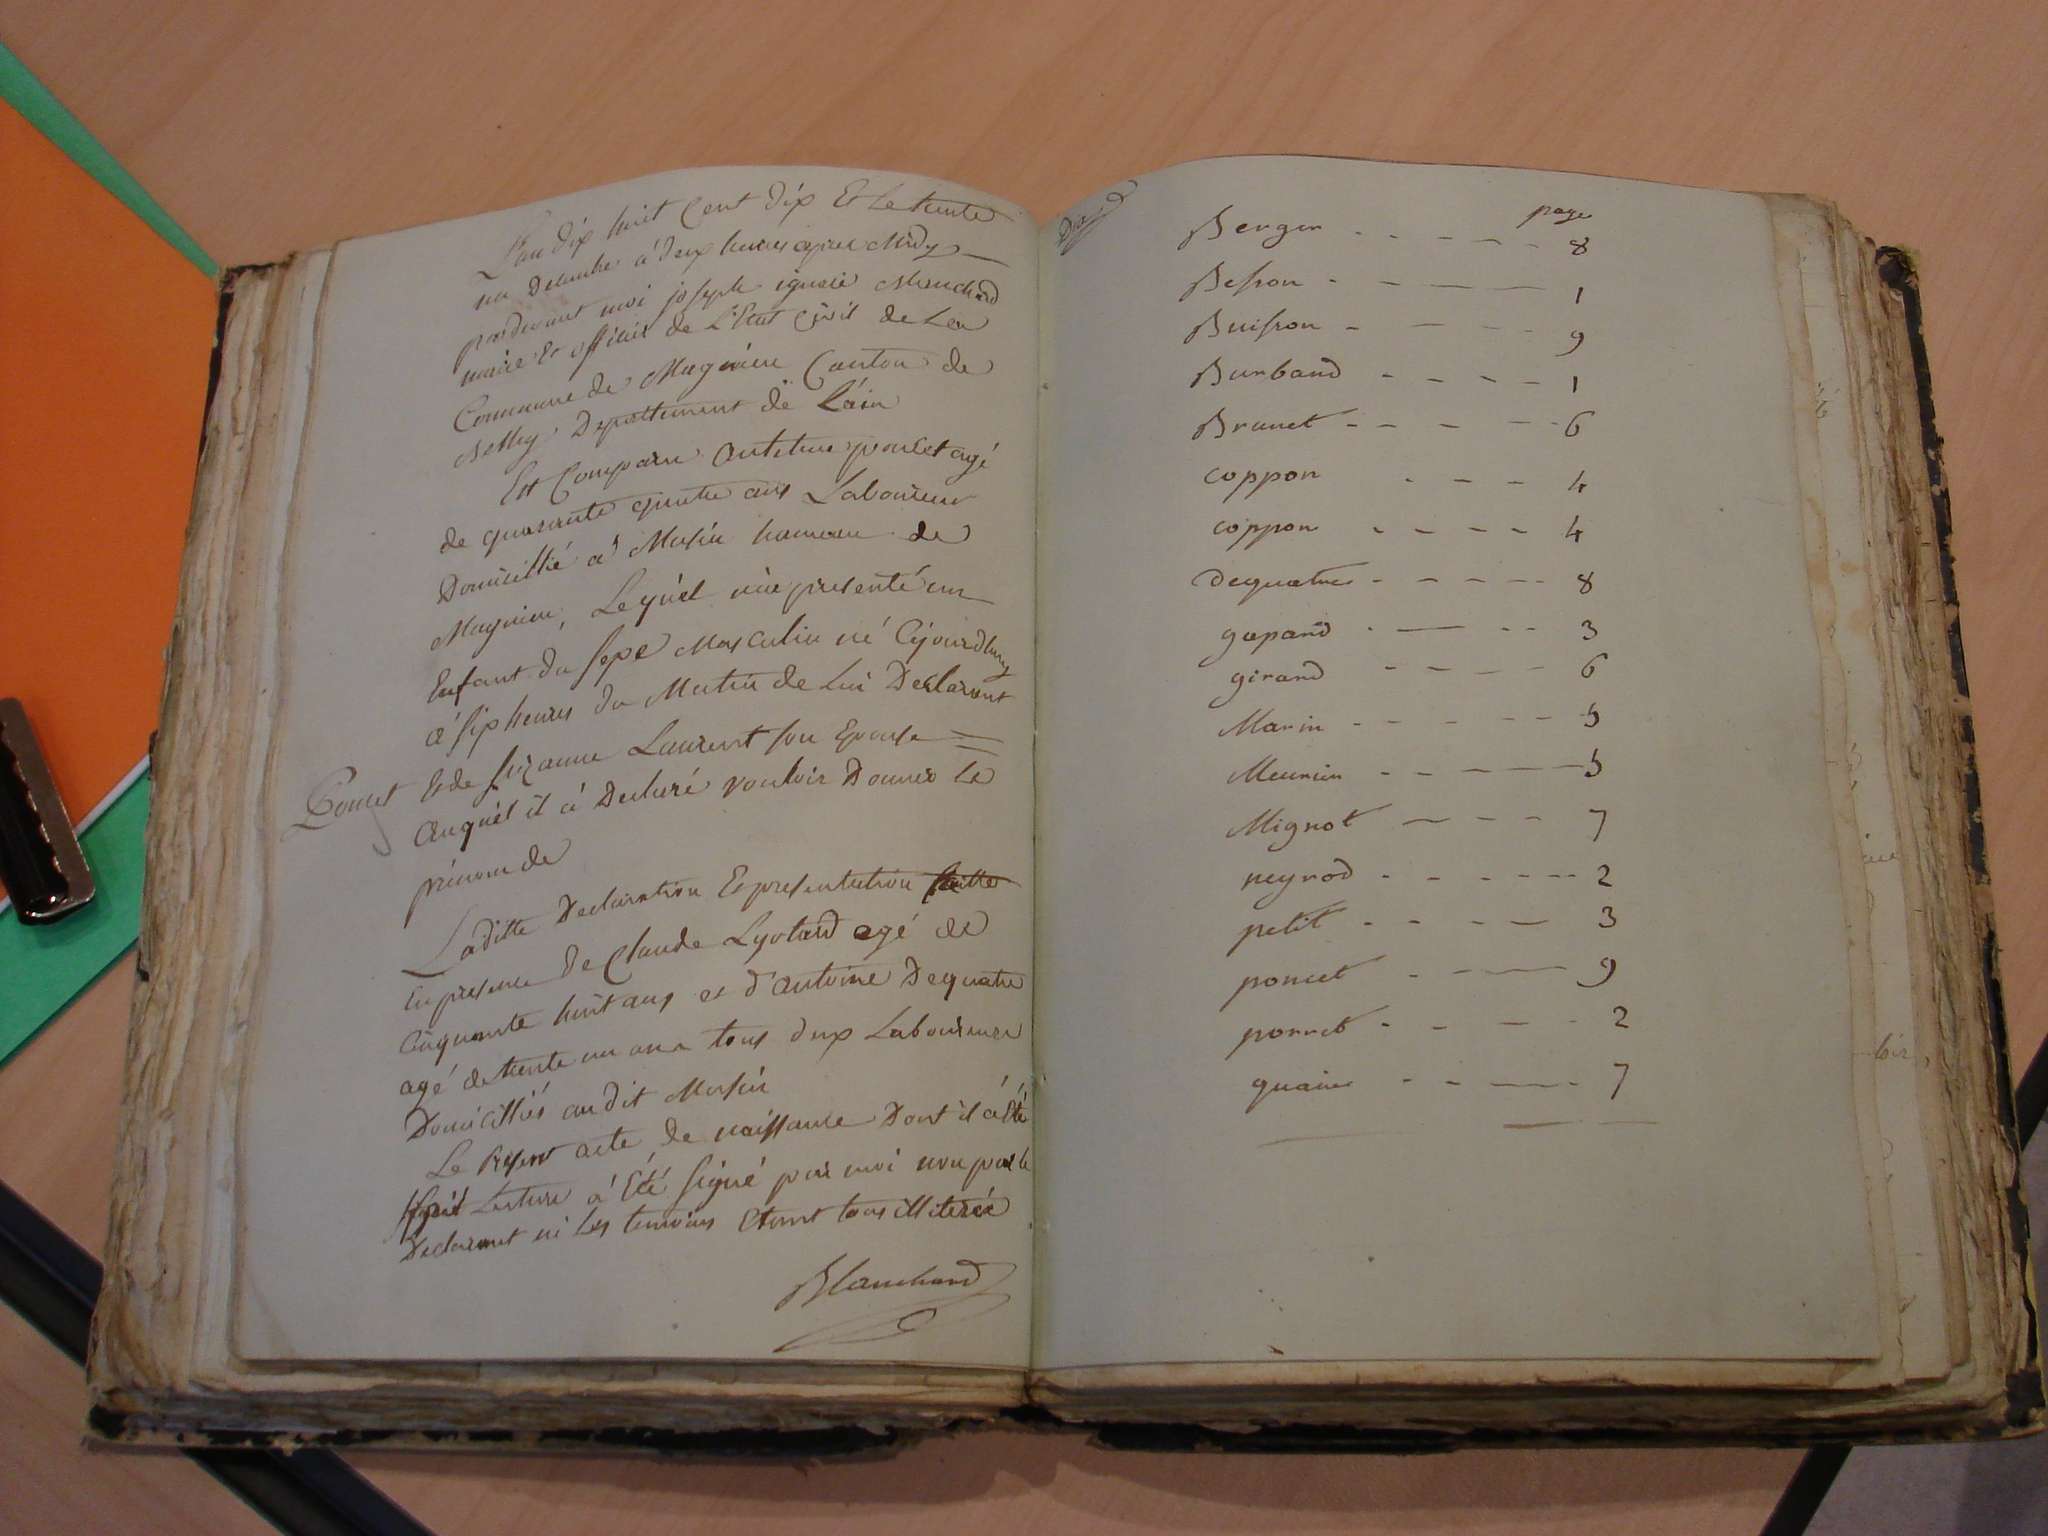 L'an dix huit Cent dix Et Le trente
un Decembre à deux heures après Midy
pardevant moi joseph ignaie Blanchard
maire Et officier de L'Etat Civil de La
Commune de Magnieu Canton de
Belley Departement de L'ain
Est Comparu Antoine poncet agé
de quarante quatre ans Laboureur
Domicillié à Musin hameau de
Magnieu, Lequel m'a presenté un
Enfant du sexe Masculin né Cejourdhuy
à six heures du Matin de Lui Declarant
Poncet
Et de Suzanne Laurent son Epouse
Auquel il à Declaré vouloir Donner le
prénom de
Laditte Declaration Et presentation faitte
En presence de Claude Lyotard agé de
Cinquante huit ans et d'antoine Dequatre
agé de trente un ans tous deux Laboureurs
Domicilliés au dit Musin
Le present acte de naissance Dont il à Eté
Lecture à Eté signé par moi non par le
Declarant ni Les temoins Etant tous illiterés
Blanchard
page
Berger 8
Besson 1
Buisson 9
Burband 1
Brunet 6
coppon 4
coppon 4
dequatres 8
gapand 3
girand 6
Marin 5
Meurier 5
Mignot 7
neyrod 2
petit 3
poncet 9
porret 2
quaines 7